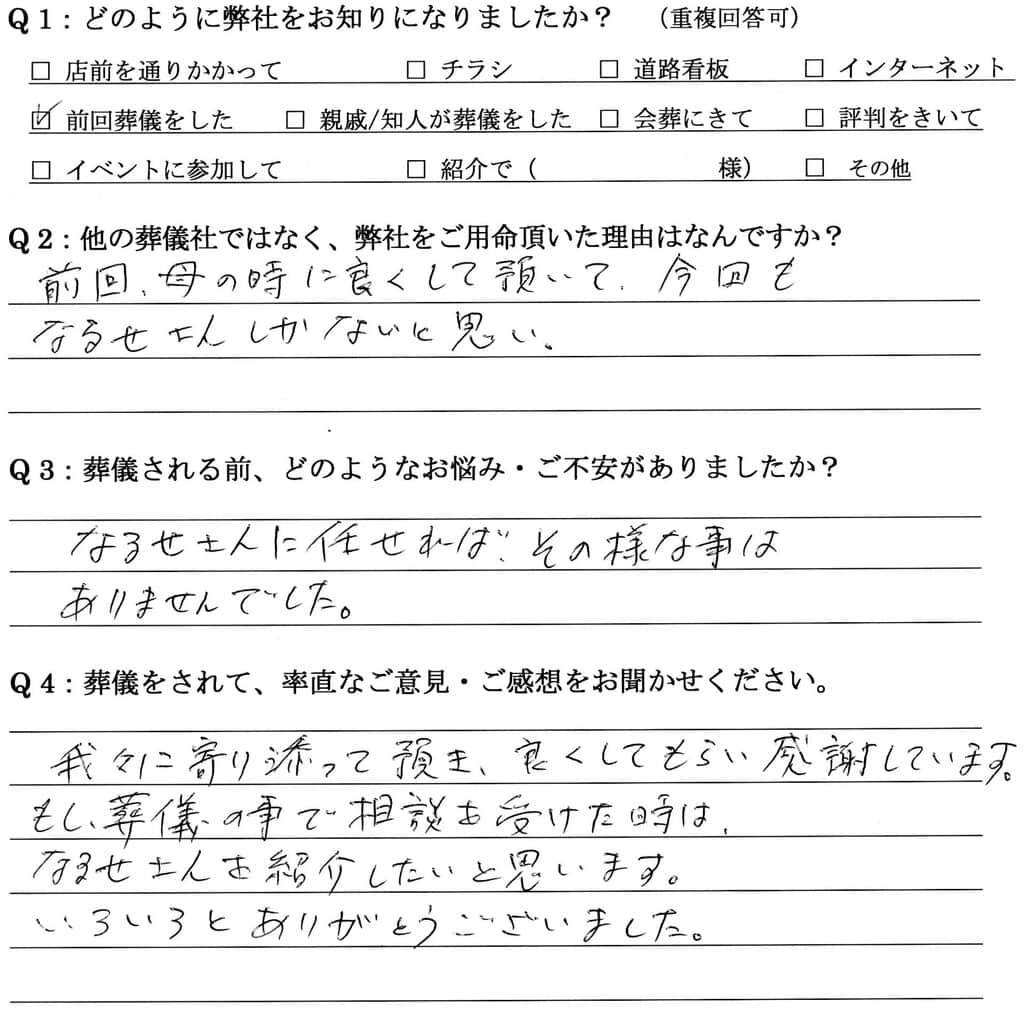 Q1：どのように弊社をお知りになりましたか？ （重複回答可）
□ 店前を通りかかって □ チラシ □ 道路看板 □ インターネット
☑ 前回葬儀をした □ 親戚/知人が葬儀をした □ 会葬にきて □ 評判をきいて
□ イベントに参加して □ 紹介で（ 様） □ その他
Q2：他の葬儀社ではなく、弊社をご用命頂いた理由はなんですか？
前回、母の時に良くして頂いて、今回も
なるせさんしかないと思い。
Q3：葬儀される前、どのようなお悩み・ご不安がありましたか？
なるせさんに任せれば、その様な事は
ありませんでした。
Q4：葬儀をされて、率直なご意見・ご感想をお聞かせください。
我々に寄り添って頂き、良くしてもらい感謝しています。
もし、葬儀の事で相談を受けた時は、
なるせさんを紹介したいと思います。
いろいろとありがとうございました。